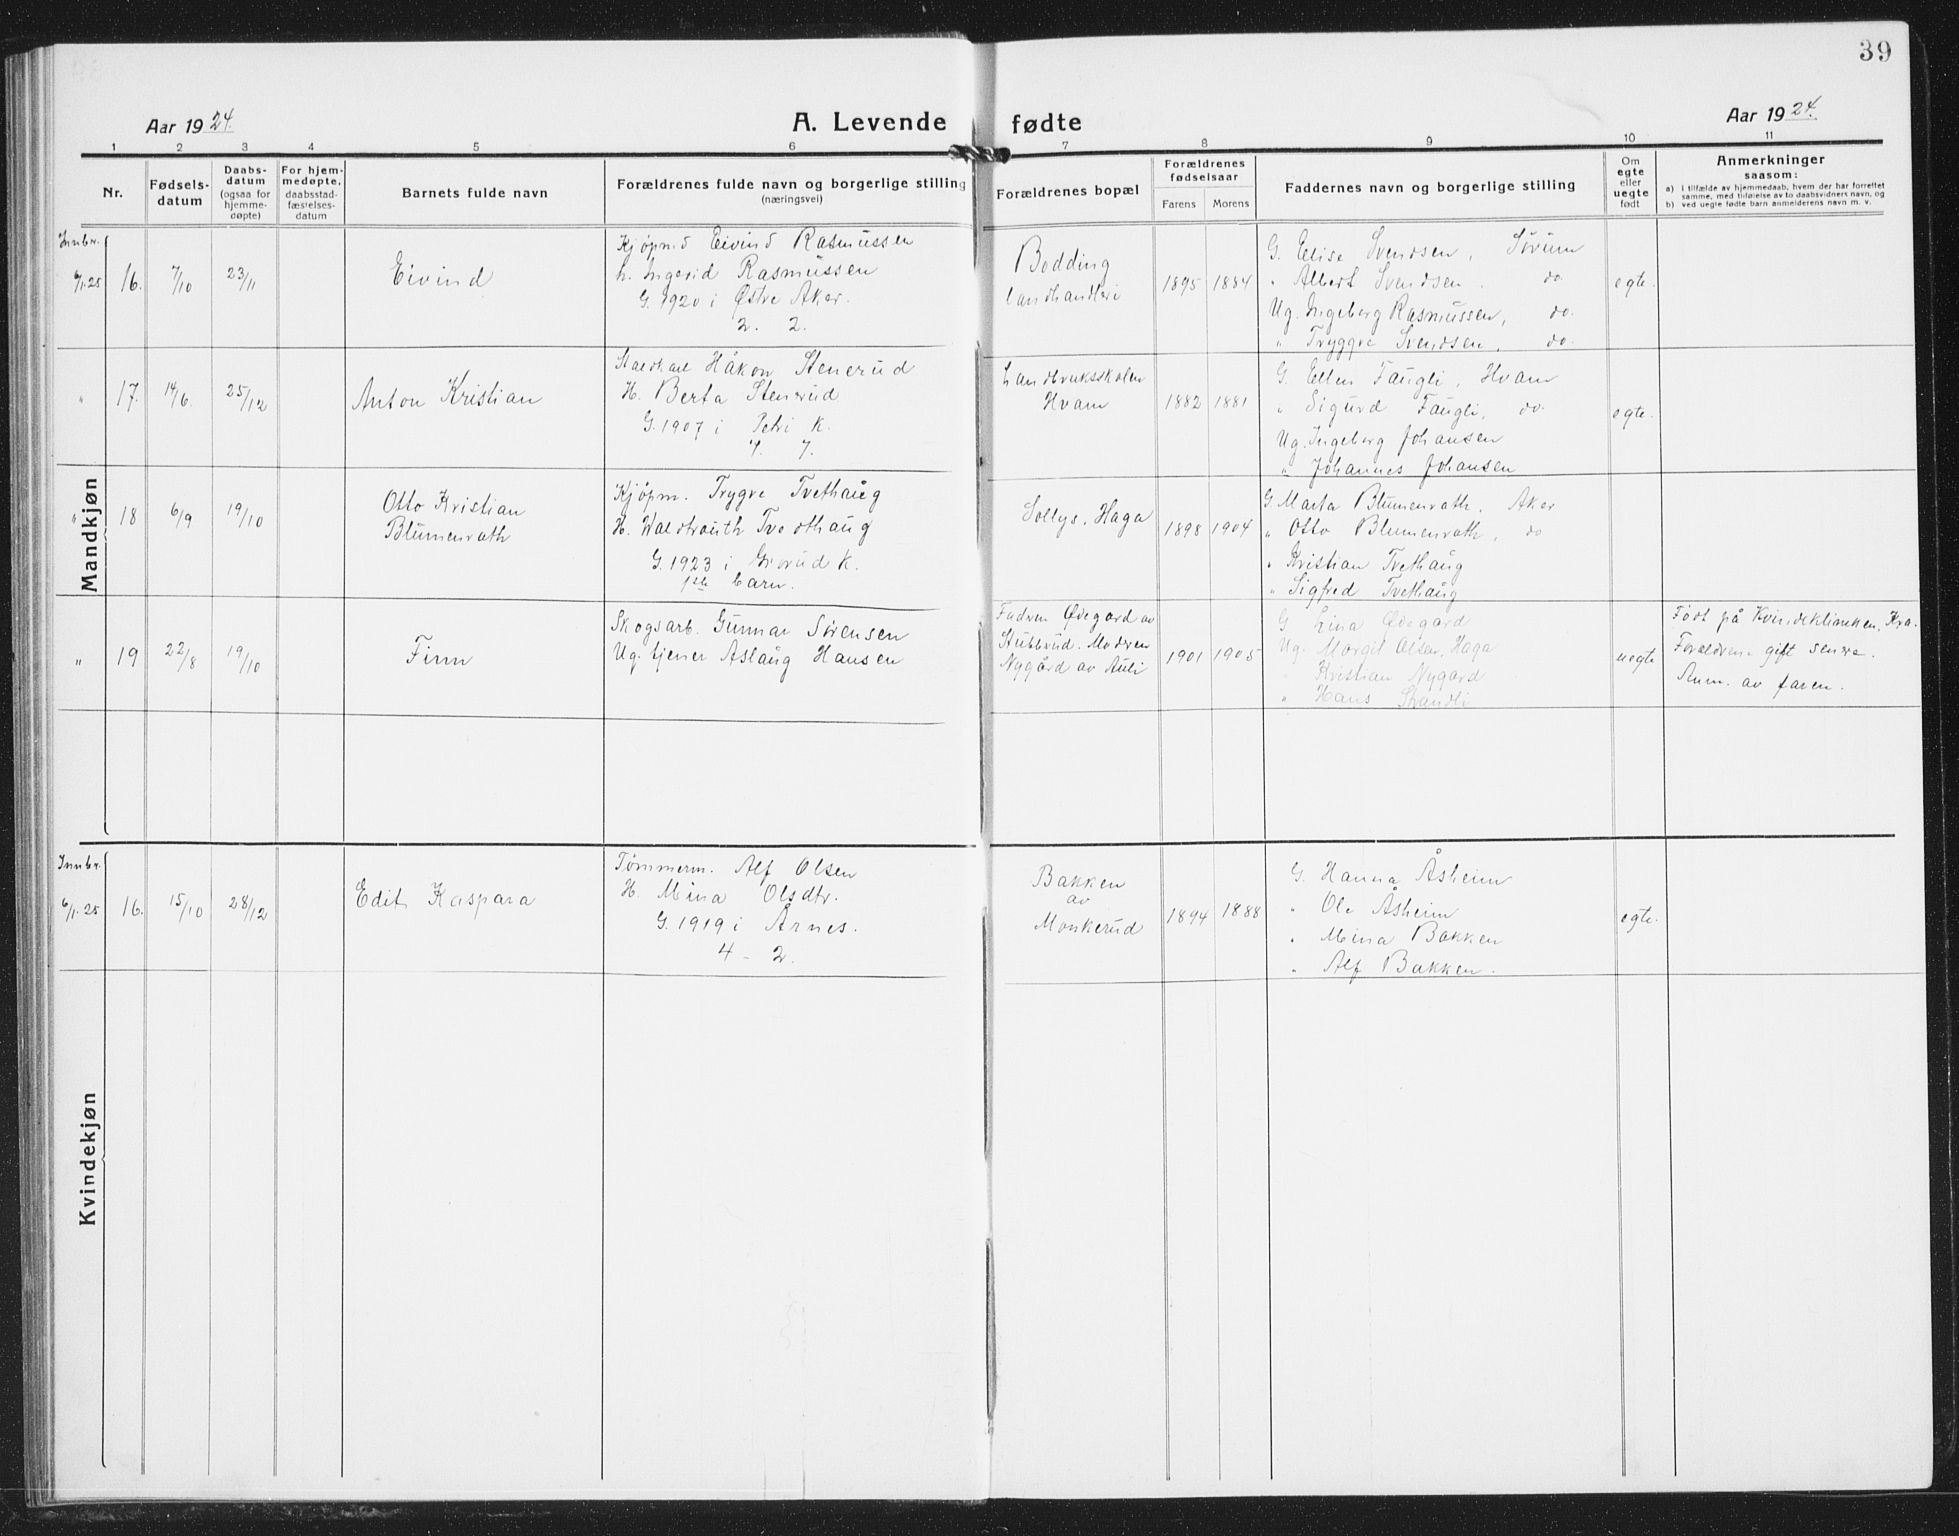 39
Aar 1924.
A. Levende fødte
Aar 1924.
1 2 3 4 5 6 7 8 9 10 11
Nr.
Fødsels-
datum
Daabs-
datum
(ogsaa for
hjemme-
døpte)
For hjem-
medøpte,
daabsstad-
fæstelses-
datum
Barnets fulde navn
Forældrenes fulde navn og borgerlige stilling
(næringsvei)
Forældrenes bopæl
Forældrenes
fødselsaar
Farens Morens
Faddernes navn og borgerlige stilling
Om
egte
eller
uegte
født
Anmerkninger
saasom:
a) i tilfælde av hjemmedaab, hvem der har forrettet
samme, med tilføielse av to daabsvidners navn, og
b) ved uegte fødte barn anmelderens navn m. v.
Mandkjøn
Innbr.
6/1.25 16. 7/10 23/11
Eivind
Kjøpmd Eivind Rasmussen
h. Ingerid Rasmussen
G. 1920 i Østre Aker.
2. 2.
Bødding
landhandleri
1895 1884
G. Elise Svendsen, Sørum
" Albert Svendsen. do.
Ug. Ingeborg Rasmussen, do.
" Tryggve Svendsen, do.
egte.
" 17. 14/6. 25/12
Anton Kristian
Håkon Stenerud
H. Berta Stenerud
G. 1907 i Petri K.
7. 7.
Landbruksskolen
Hvam
1882 1881
G. Ellen Faugli, Hvam
" Sigurd Faugli, do.
Ug. Ingeborg Johansen
" Johannes Johansen
egte.
" 18 6/9 19/10
Otto Kristian
Blumenrath
Kjøpm. Trygve Tvethaug
H. Waldtrauth Tvedthaug
G. 1923 i Grorud K.
1ste barn.
Sollys, Haga
1898 1904
G. Marta Blumenrath, Aker
" Otto Blumenrath, do
" Kristian Tvethaug
" Sigfred Tvethaug
" 19 22/8 19/10
Finn
Skogsarb. Gunnar Sørensen
Ug. tjener Aslaug Hansen
Fadren Ødegård av
Stubbrud. Modren
Nygård av Auli
1901 1905
G Lina Ødegård
Ug. Margit Olsen, Haga
" Kristian Nygård
" Hans Strandli
uegte
Født på Kvindeklinken, Kra.
Forældrene gift senere.
Anm. av faren.
Kvindekjøn
Innbr.
6/1.25 16. 15/10 28/12
Edit Kaspara
Tømmerm. Alf Olsen
H. Mina Olsdtr.
G. 1919 i Årnes.
4 - 2.
Bakken
av
Monkerud
1894 1888
G. Hanna Åsheim
" Ole Åsheim
" Mina Bakken
" Alf Bakken.
egte.